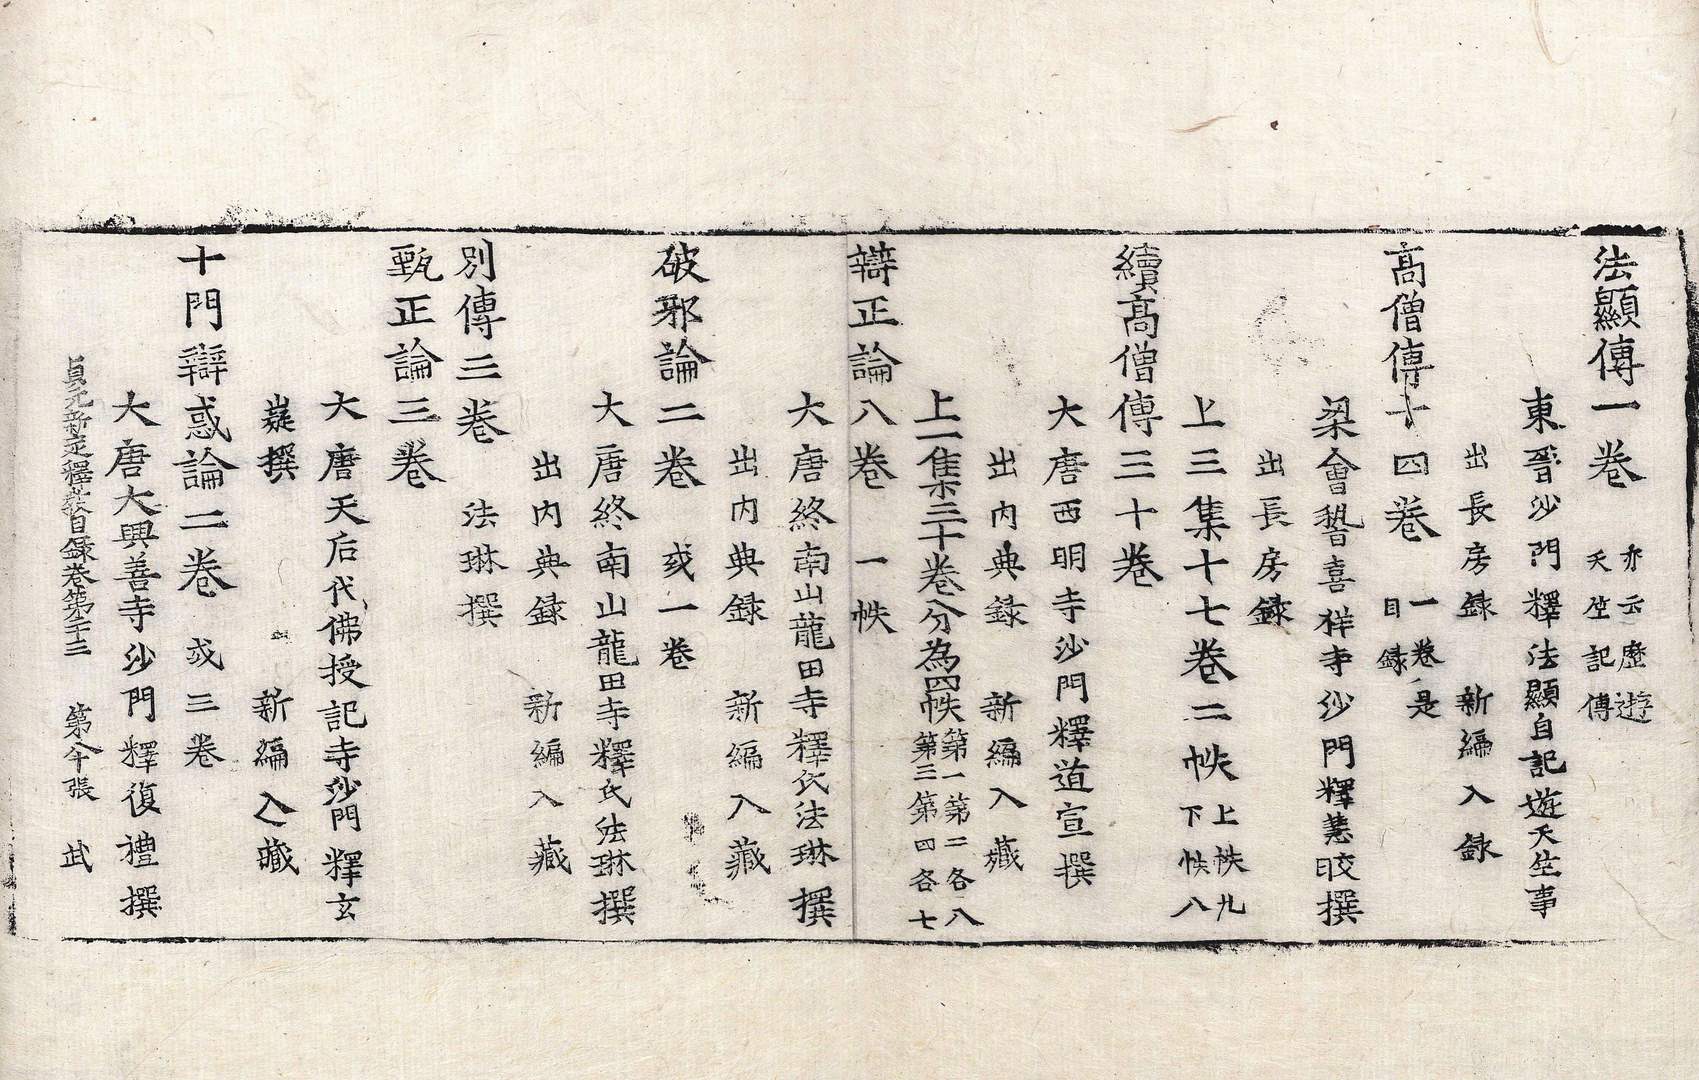 法顯傳一卷 亦云歷遊天竺記傳
東晉沙門釋法顯自記遊天竺事
出長房録 新編入録
高僧傳十四卷 一卷是目録
梁會稽嘉祥寺沙門釋慧皎撰
出長房録
上三集十七卷二帙 上帙九下帙八
續高僧傳三十卷
大唐西明寺沙門釋道宣撰
出内典録 新編入藏
上一集三十卷分為四帙 第一第二各八第三第四各七
辯正論八卷 一帙
大唐終南山龍田寺釋氏法琳撰
出内典録 新編入藏
破邪論二卷 或一卷
大唐終南山龍田寺釋氏法琳撰
出内典録 新編入藏
別傳三卷 法琳撰
甄正論三卷
大唐天后代佛授記寺沙門釋玄
嶷撰 新編入藏
十門辯惑論二卷 或三卷
大唐大興善寺沙門釋復禮撰
貞元新定釋教目録卷第二十三 第 張 武